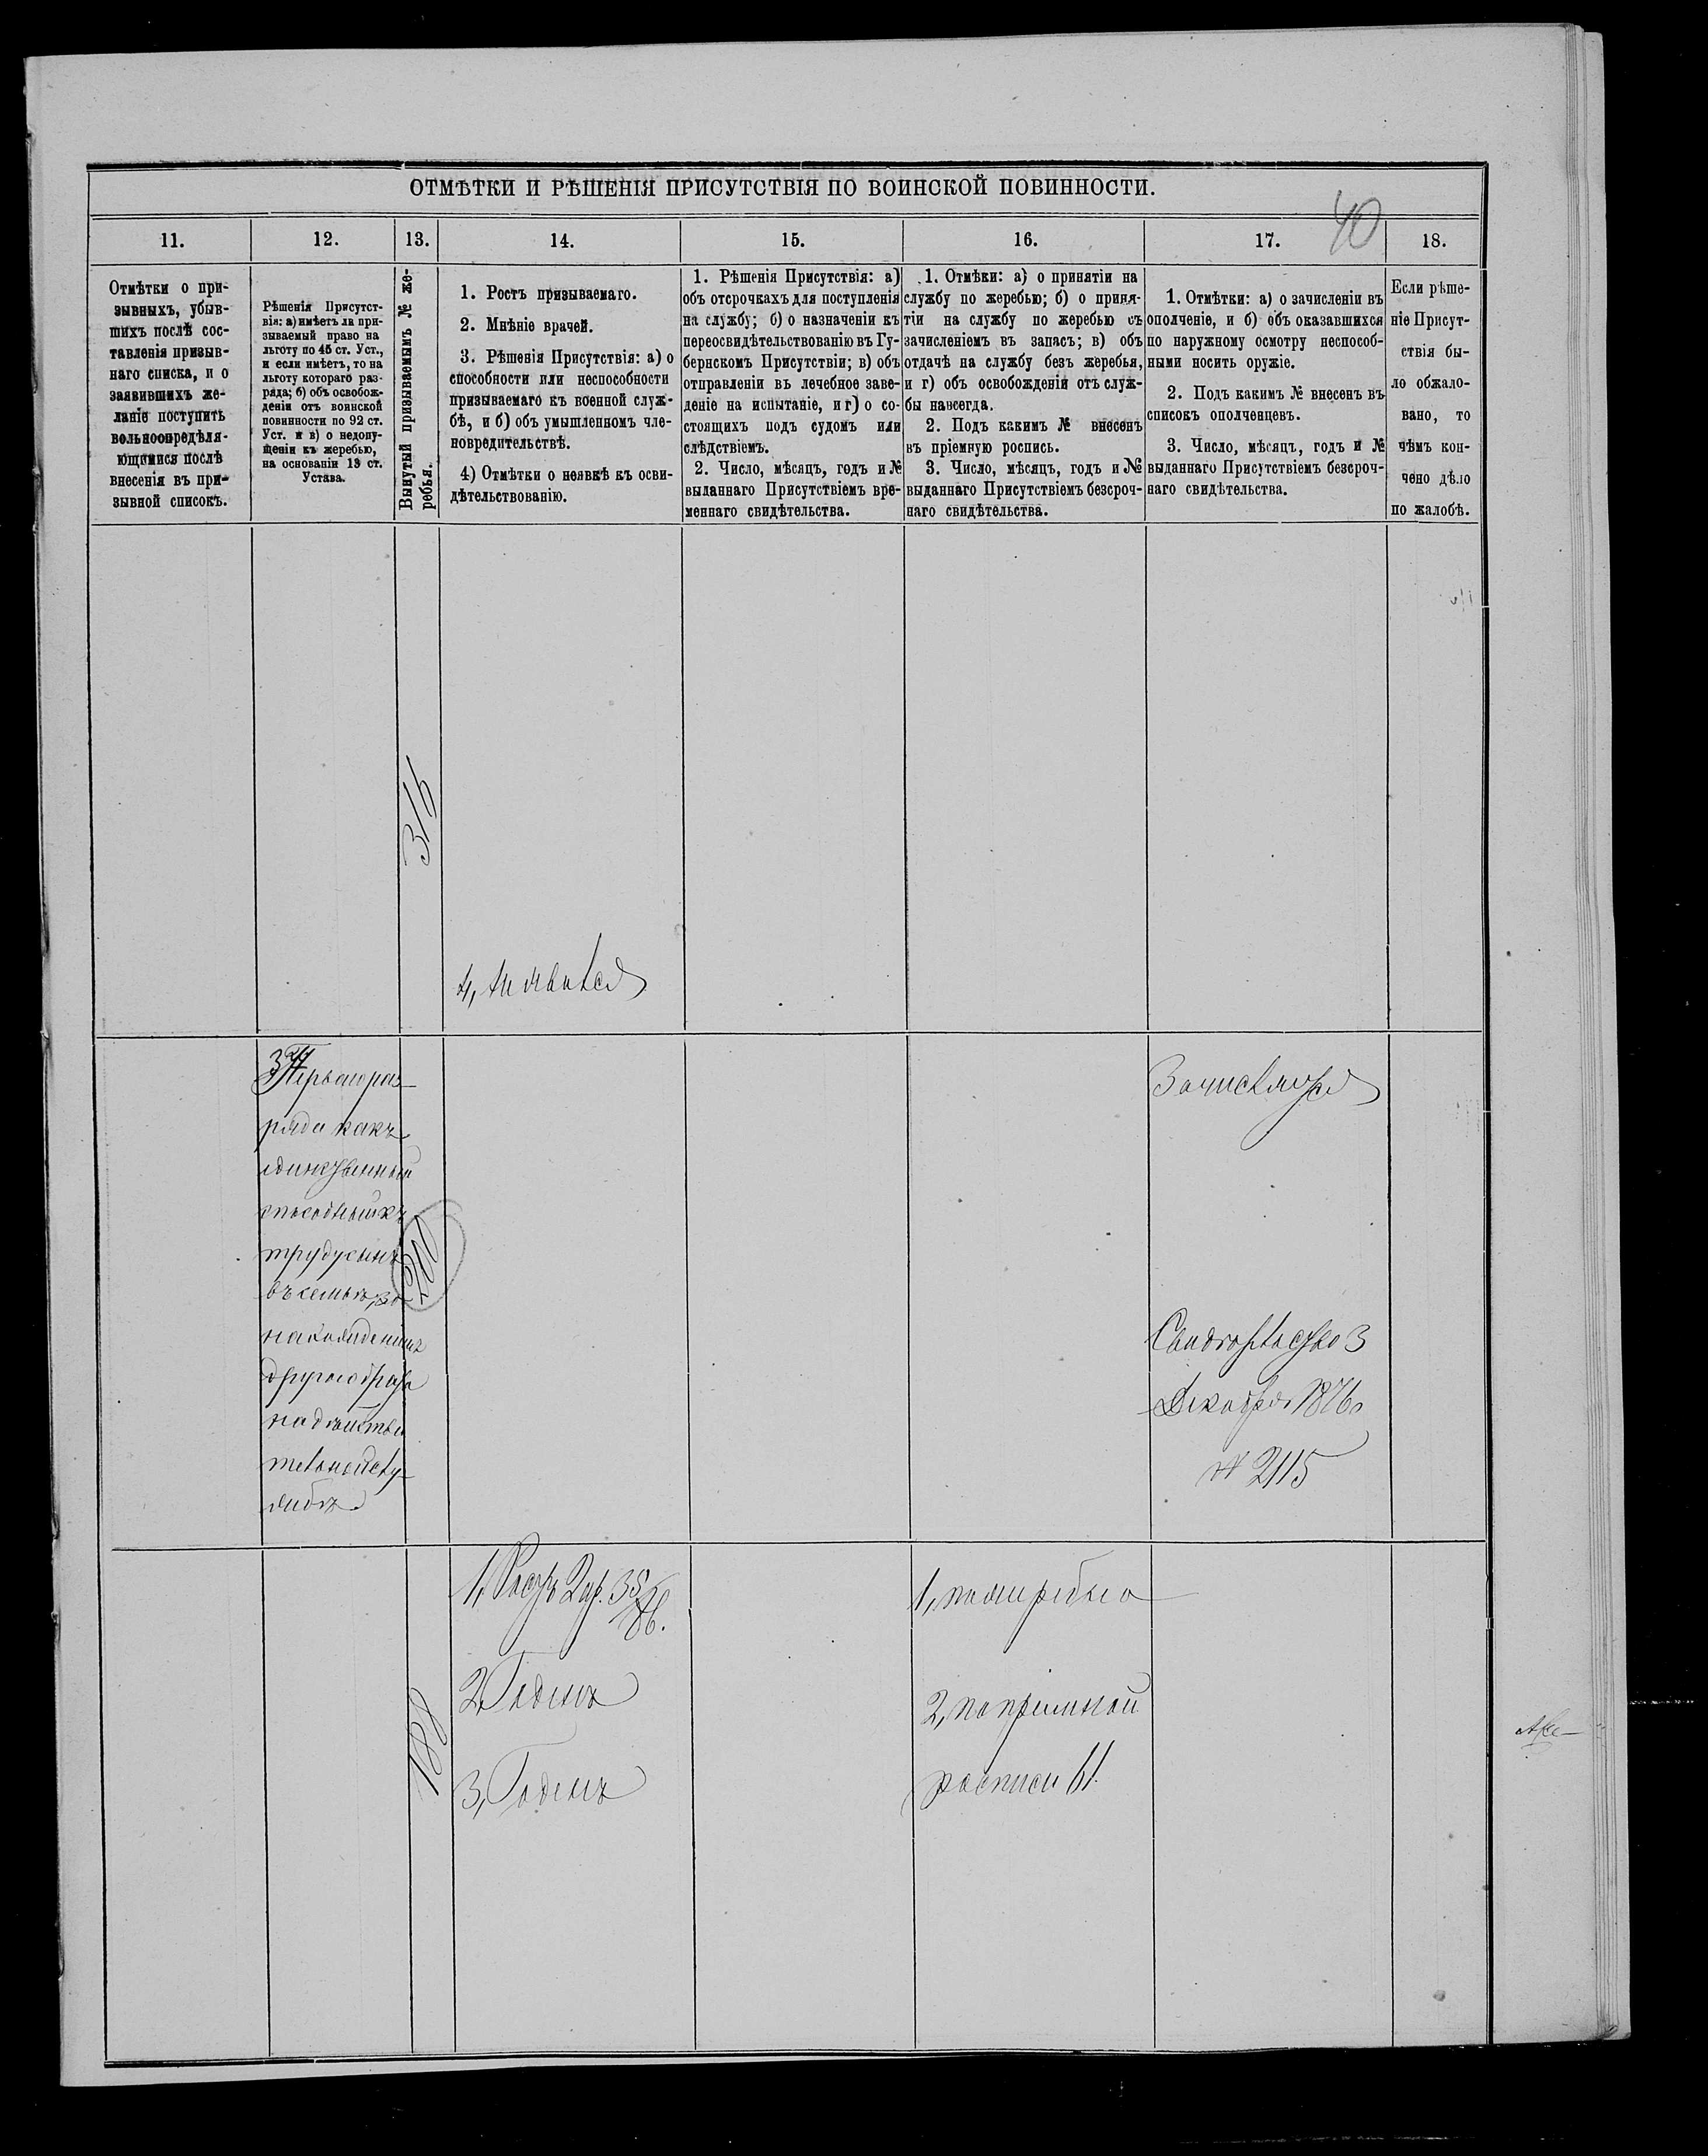 ОТМѢТКИ И РѢШЕНІЯ ПРИСУТСТВІЯ ПО ВОИНСКОЙ ПОВИННОСТИ.
40
11.
12.
13.
14.
15.
16.
17.
18.
Отмѣтки о при-
зывныхъ, убыв-
шихъ послѣ сос-
тавленія призыв-
наго списка, и о
заявившихъ же-
ланіе поступить
вольноопредѣля-
ющимися послѣ
внесенія въ при-
зывной списокъ.
Рѣшенія Присутст-
вія: а) имѣетъ ли при-
зываемый право на
льготу по 45 ст. Уст.,
и если имѣетъ, то на
льготу котораго раз-
ряда; б) объ освобож-
деніи отъ воинской
повинности по 92 ст.
Уст. и в) о недопу-
щеніи къ жеребью,
на основаніи 13 ст.
Устава.
Вынутый призываемымъ № же-
ребья.
1. Ростъ призываемаго.
2. Мнѣніе врачей.
3. Рѣшенія Присутствія: а) о
способности или неспособности
призываемаго къ военной служ-
бѣ, и б) объ умышленномъ чле-
новредительствѣ.
4) Отмѣтки о неявкѣ къ осви-
дѣтельствованію.
1. Рѣшенія Присутствія: а)
объ отсрочкахъ для поступленія
на службу; б) о назначеніи къ
переосвидѣтельствованію въ Гу-
бернскомъ Присутствіи; в) объ
отправленіи въ лечебное заве-
деніе на испытаніе, и г) о со-
стоящихъ подъ судомъ или
слѣдствіемъ.
2. Число, мѣсяцъ, годъ и №
выданнаго Присутствіемъ вре-
меннаго свидѣтельства.
1. Отмѣки: а) о принятіи на
службу по жеребью; б) о приня-
тіи на службу по жеребью съ
зачисленіемъ въ запасъ; в) объ
отдачѣ на службу безъ жеребья,
и г) объ освобожденіи отъ служ-
бы навсегда.
2. Подъ какимъ № внесенъ
въ пріемную роспись.
3. Число, мѣсяцъ, годъ и №
выданнаго Присутствіемъ безсроч-
наго свидѣтельства.
1. Отмѣтки: а) о зачисленіи въ
ополченіе, и б) объ оказавшихся
по наружному осмотру неспособ-
ными носить оружіе.
2. Подъ какимъ № внесенъ въ
списокъ ополченцевъ.
3. Число, мѣсяцъ, годъ и №
выданнаго Присутствіемъ безсроч-
наго свидѣтельства.
Если рѣше-
ніе Присут-
ствія бы-
ло обжало-
вано, то
чѣмъ кон-
чено дѣло
по жалобѣ.
316
4, не явился
Перваго раз-
ряда какъ
единственный
способный къ
труду сынъ
въ семьѣ, за
нахожденіемъ
другого брата
на дѣйстви
тельной слу-
жбѣ
200
Зачисляется
Свидѣтельство 3
Декабря 1876
№ 2115
188
1, Ростъ 2 ар. 3 5/8 в.
2, Годенъ
3, Годенъ
1, по жеребью
2, по пріемной
росписи 61.